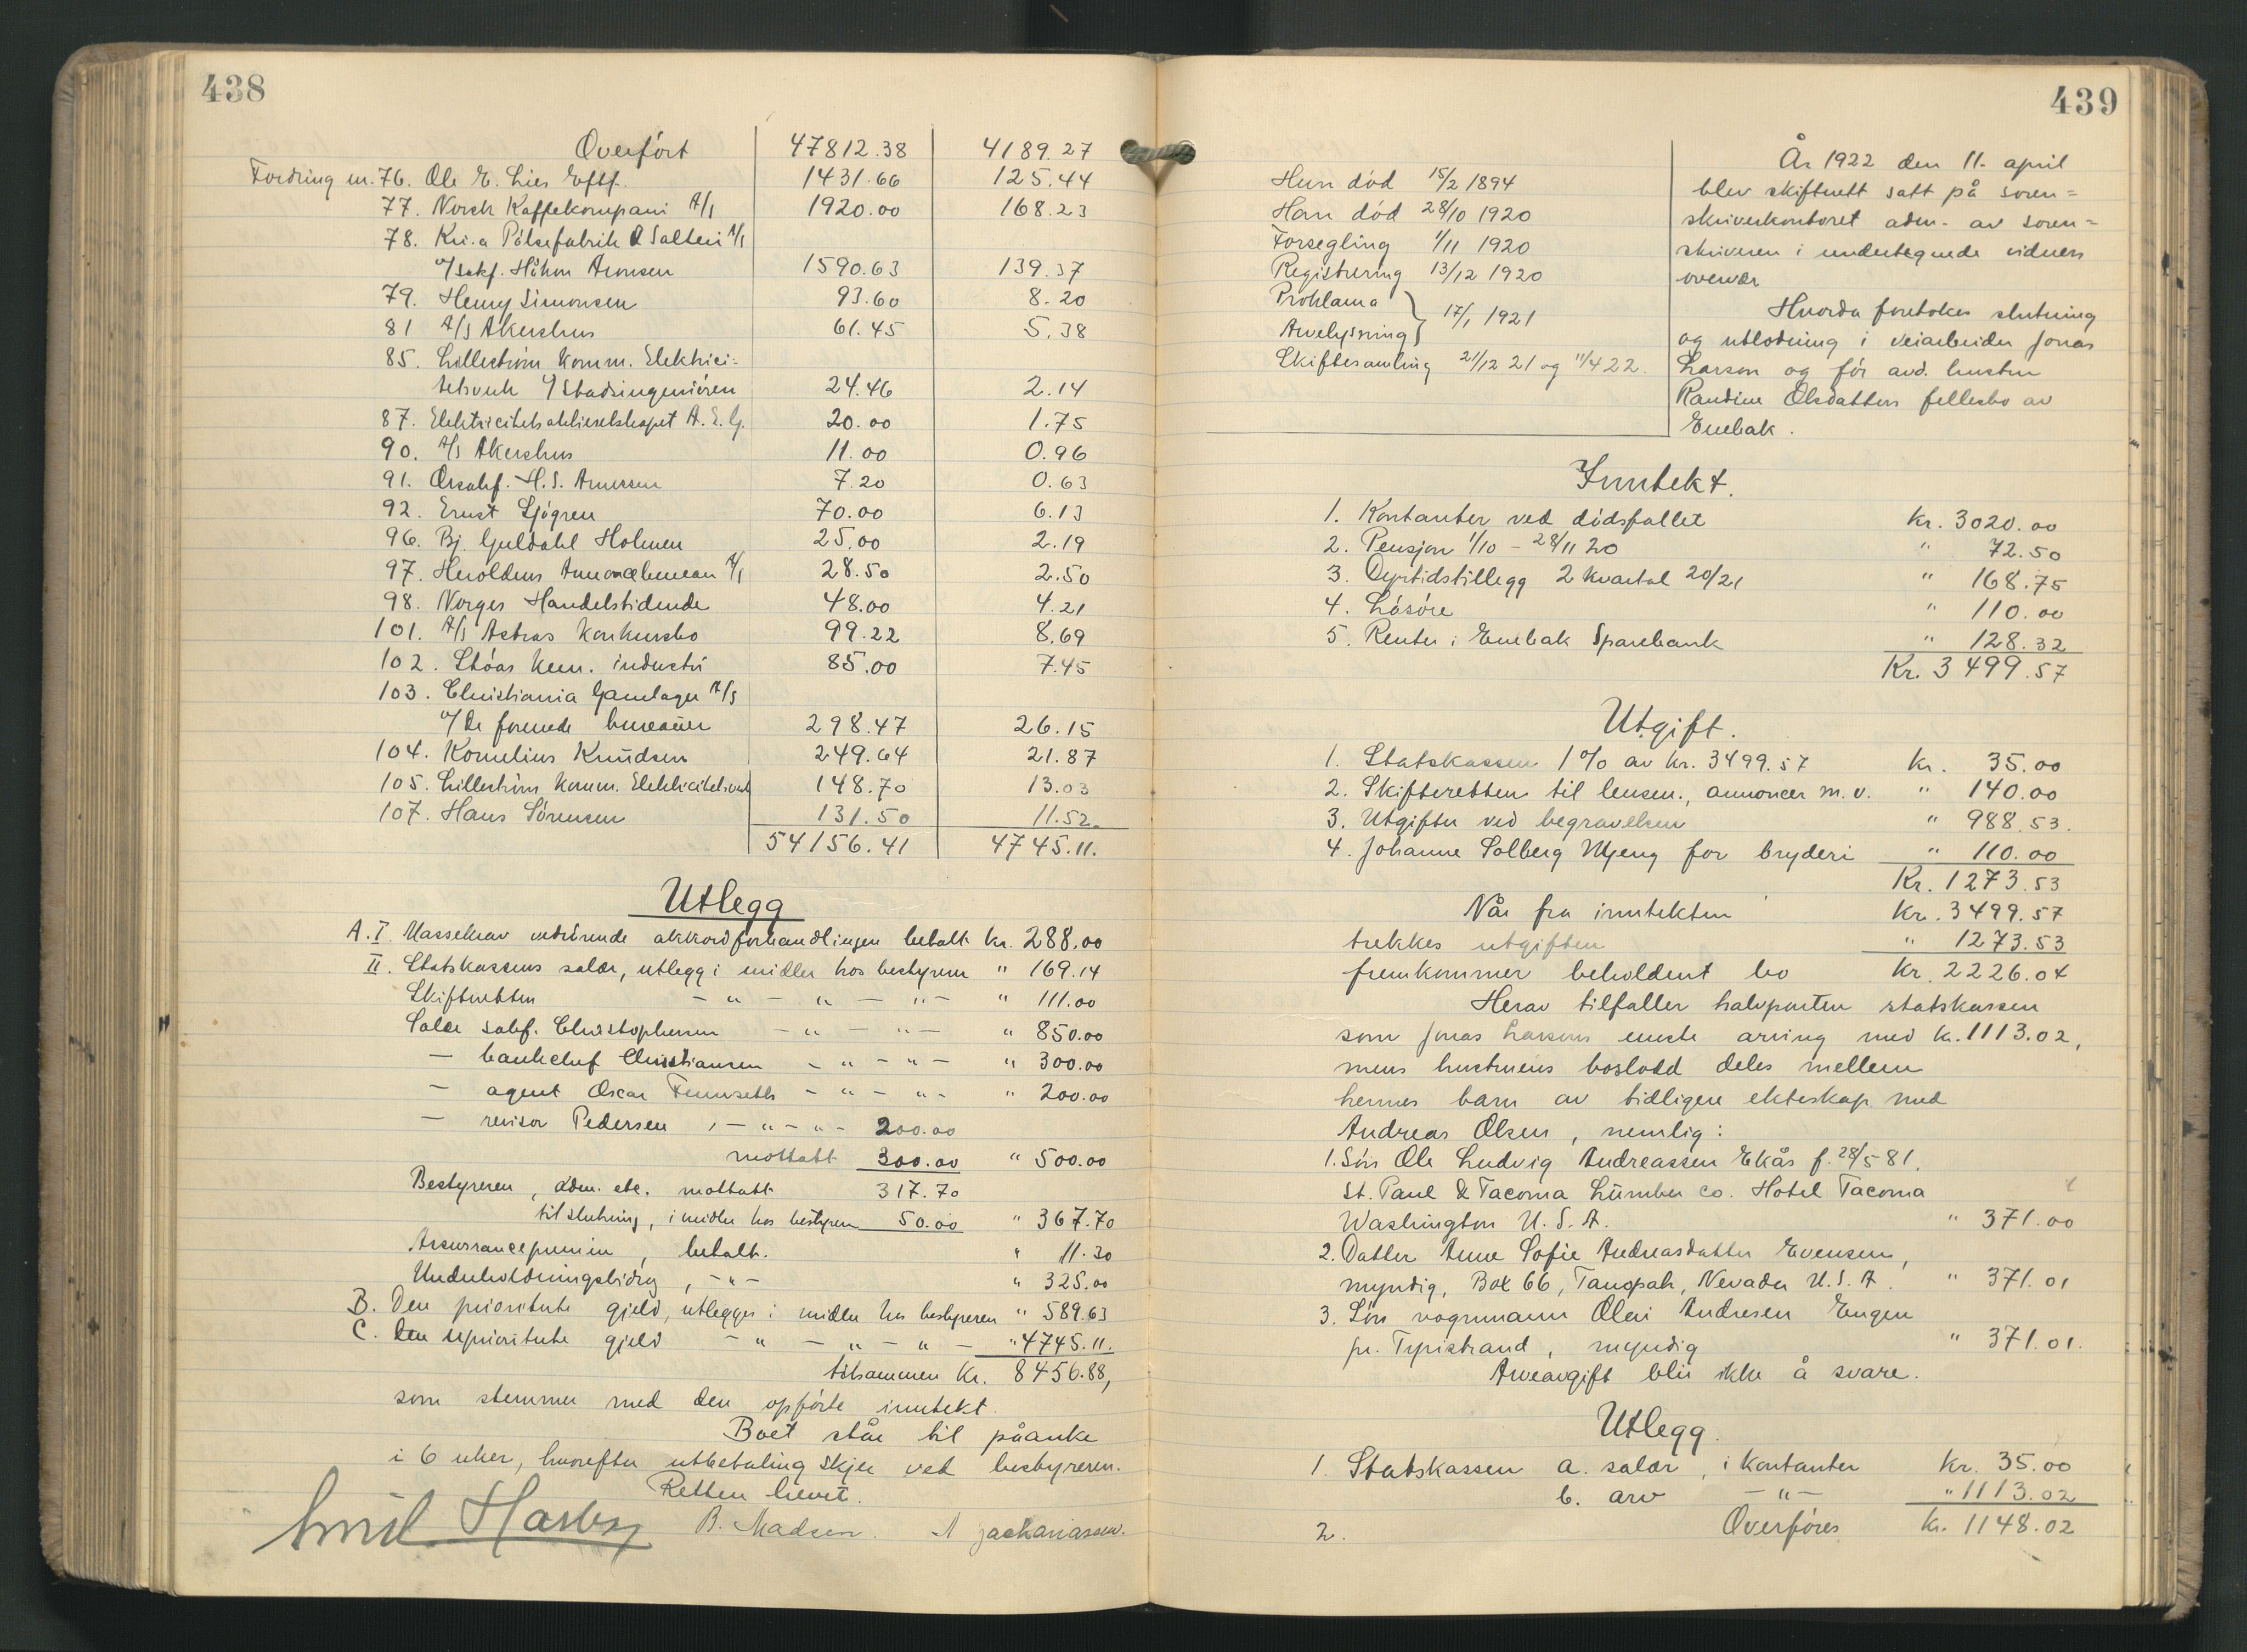 438
Overført 47812.38 4189.27
Fordring nr. 76. Ole E. Lies Eftf. 1431.66 125.44
77. Norsk Kaffekompani A/S 1920.00 168.23
78. Kr.a Pølsefabrik & Salteri A/S
v/sakf. Håkon Aronsen 1590.63 139.37
79. Henry Simonsen 93.60 8.20
81 A/S Akershus 61.45 5.38
85. Lillestrøm komm. Elektrici-
tetsverk v/Stadsingeniøren 24.46 2.14
87. Elektricitetsaktieselskapet A.E.G. 20.00 1.75
90. A/S Akershus 11.00 0.96
91. Orsakf. H.S. Arnesen 7.20 0.63
92. Ernst Sjøgren 70.00 6.13
96. Bj. Guldahl Holmen 25.00 2.19
97. Heroldens Annoncebureau A/S 28.50 2.50
98. Norges Handelstidende 48.00 4.21
101. A/S Astras konkursbo 99.22 8.69
102. Støas kem. industri 85.00 7.45
103. Christiania Garnlager A/S
v/De forenede bureauer 298.47 26.15
104. Kornelius Knudsen 249.64 21.87
105. Lillestrøm komm. Elektricitetsverk 148.70 13.03
107. Hans Sørensen 131.50 11.52
54156.41 4745.11.
Utlegg
A. I. Massekrav vedrørende akkordforhandlingen betalt kr. 288.00
II. Statskassens salær, utlegg i midler hos bestyreren " 169.14
Skifteretten - " - " - " - " 111.00
Salær sakf. Christophersen - " - " - " 850.00
- banksjef Christiansen - " - " - " 300.00
- agent Oscar - " - " - " 200.00
- revisor Pedersen , - " - " - 200.00
mottatt 300.00 " 500.00
Bestyreren, adm. etc. mottatt 317.70
til slutning, i midler hos bestyreren 50.00 " 367.70
Assurancepremie, betalt. " 11.30
Underholdningsbidrag, - " - " 325.00
B. Den prioriterte gjeld, utlegges i midler hos bestyreren " 589.63
C. Den uprioriterte gjeld - " - " - " - " 4745.11.
tilsammen Kr. 8456.88,
som stemmer med den opførte inntekt.
Boet står til påanke
i 6 uker, hvorefter utbetaling skjer ved bestyreren.
Retten hevet.
Emil Harby B. Madsen. A Zachariassen.
439
Hun død 15/2 1894
Han død 28/10 1920
Forsegling 1/11 1920
Registrering 13/12 1920
Proklama
Arvelysning } 17/1 1921
Skiftesamling 21/12 21 og 11/4 22.
År 1922 den 11. april
blev skifterett satt på soren=
skriverkontoret adm. av soren=
skriveren i undertegnede vidners
overvær
Hvorda foretokes slutning
og utlodning i veiarbeider Jonas
Larson og før avd. hustru
Randine Olsdatters fellesbo av
Enebak.
Inntekt.
1. Kontanter ved dødsfallet kr. 3020.00
2. Pensjon 1/10 - 28/11 20 " 72.50
3. Dyrtidstillegg 2 kvartal 20/21 " 168.75
4. Løsøre " 110.00
5. Renter i Enebak Sparebank " 128.32
Kr. 3499.57
Utgift.
1. Statskassen 1% av kr. 3499.57 kr. 35.00
2. Skifteretten til bevisn., annoncer m.v. " 140.00
3. Utgifter ved begravelsen " 988.53.
4. Johanne Solberg Mjeng for bryderi " 110.00
Kr. 1273.53
Når fra inntekten kr. 3499.57
trekkes utgiften " 1273.53
fremkommer beholdent bo kr. 2226.04
Herav tilfaller halvparten statskassen
som Jonas Larsons eneste arving med kr. 1113.02,
mens hustruens boslodd deles mellem
hennes barn av tidligere ekteskap med
Andreas Olsen, nemlig:
1. Søn Ole Ludvig Andreassen Ekås f. 28/5 81.
St. Paul & Tacoma Lumber co. Hotel Tacoma
Washington U.S.A. " 371.00
2. Datter Anne Sofie Andreasdatter Evensen,
myndig, Box 66, Tanopah, Nevada U.S.A. " 371.01
3. Søn vognmann Olai Andresen Engen
pr. Tyristrand, myndig " 371.01.
Arveavgift blir ikke å svare.
Utlegg.
1. Statskassen a. salær, i kontanter kr. 35.00
b. arv - " - " 1113.02
2. Overføres kr. 1148.02